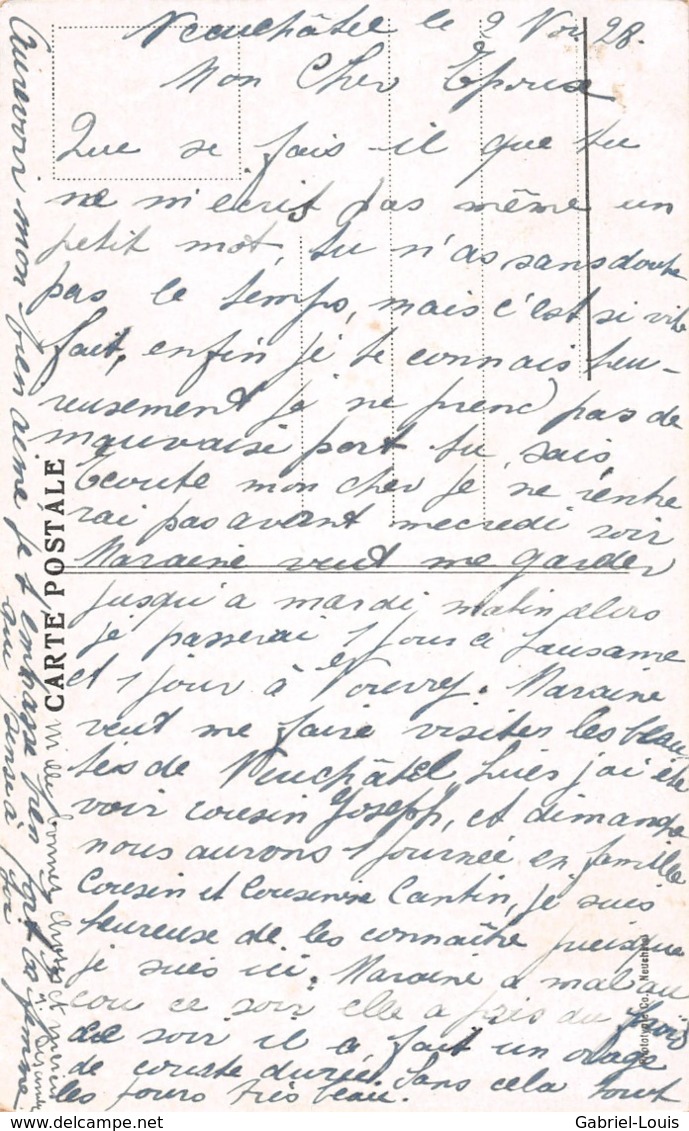 Neuchâtel le 9 Nov. 28.
Mon Cher Epoux
Que se fais il que tu
ne m'ecrit pas même un
petit mot, tu n'as sans doute
pas le temps, mais c'est si vite
fait, enfin je te connais heu-
reusement je ne prend pas de
mauvaise part tu sais,
Ecoute mon cher je ne rentre
rai pas avant mecredi soir
Maraine veut me garder
jusqu'a mardi matin alors
je passerai 1 jour a Lausanne
et 1 jour à Vouvry. Maraine
veut me faire visiter les beau
tés de Neuchâtel, hier j'ai été
voir cousin Joseph, et dimanche
nous aurons 1 journée en famille
Cousin et Cousine Cantin, je suis
heureuse de les connaître puisque
je suis ici. Maraine a mal au
cou ce soir elle a pris du froid
ce soir il a fait un orage
de courte durée. Sans cela tout
les jours très beau.
Aurevoir mon bien aimé je t'embrasse bien fort ta femme
qui pense à toi
Mille bonnes choses et
CARTE POSTALE
Phototypie Co. Neuchâtel
Gabriel-Louis